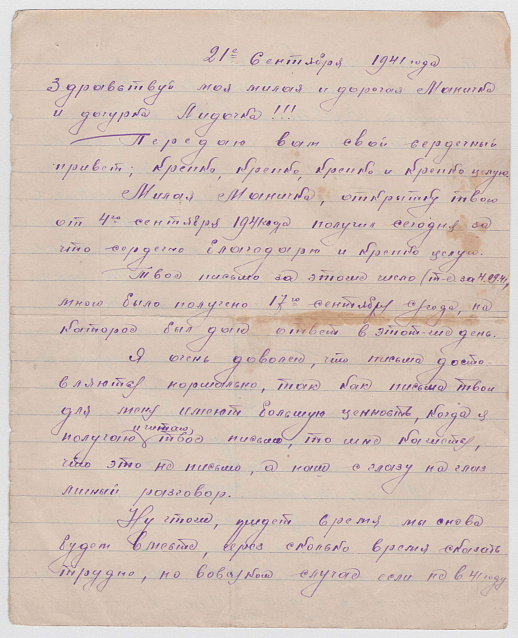 21е Сентября 1941 года
Здравствуй моя милая и дорогая Маничка
и дочурка Лидочка!!!
Передаю вам свой сердечный
привет; крепко, крепко, крепко и крепко целую
Милая Маничка, открытку твою
от 4го сентября 1941 года получил сегодня за
что сердечно благодарю и крепко целую.
Твое письмо за этоже число (т-е за 4.09.41,
мною было получено 17го сентября с/года, на
которое был дан ответ в этот-же день.
Я очень доволен, что письма доста-
вляются нормально, так как письма твои
для меня имеют большую ценность, когда я
получаю и читаю твое письмо, то мне кажется,
что это не письмо, а наш с глазу на глаз
личный разговор.
Ну чтож, придет время мы снова
будем вместе, через сколько время сказать
трудно, но вовсяком случае если не в 41 году